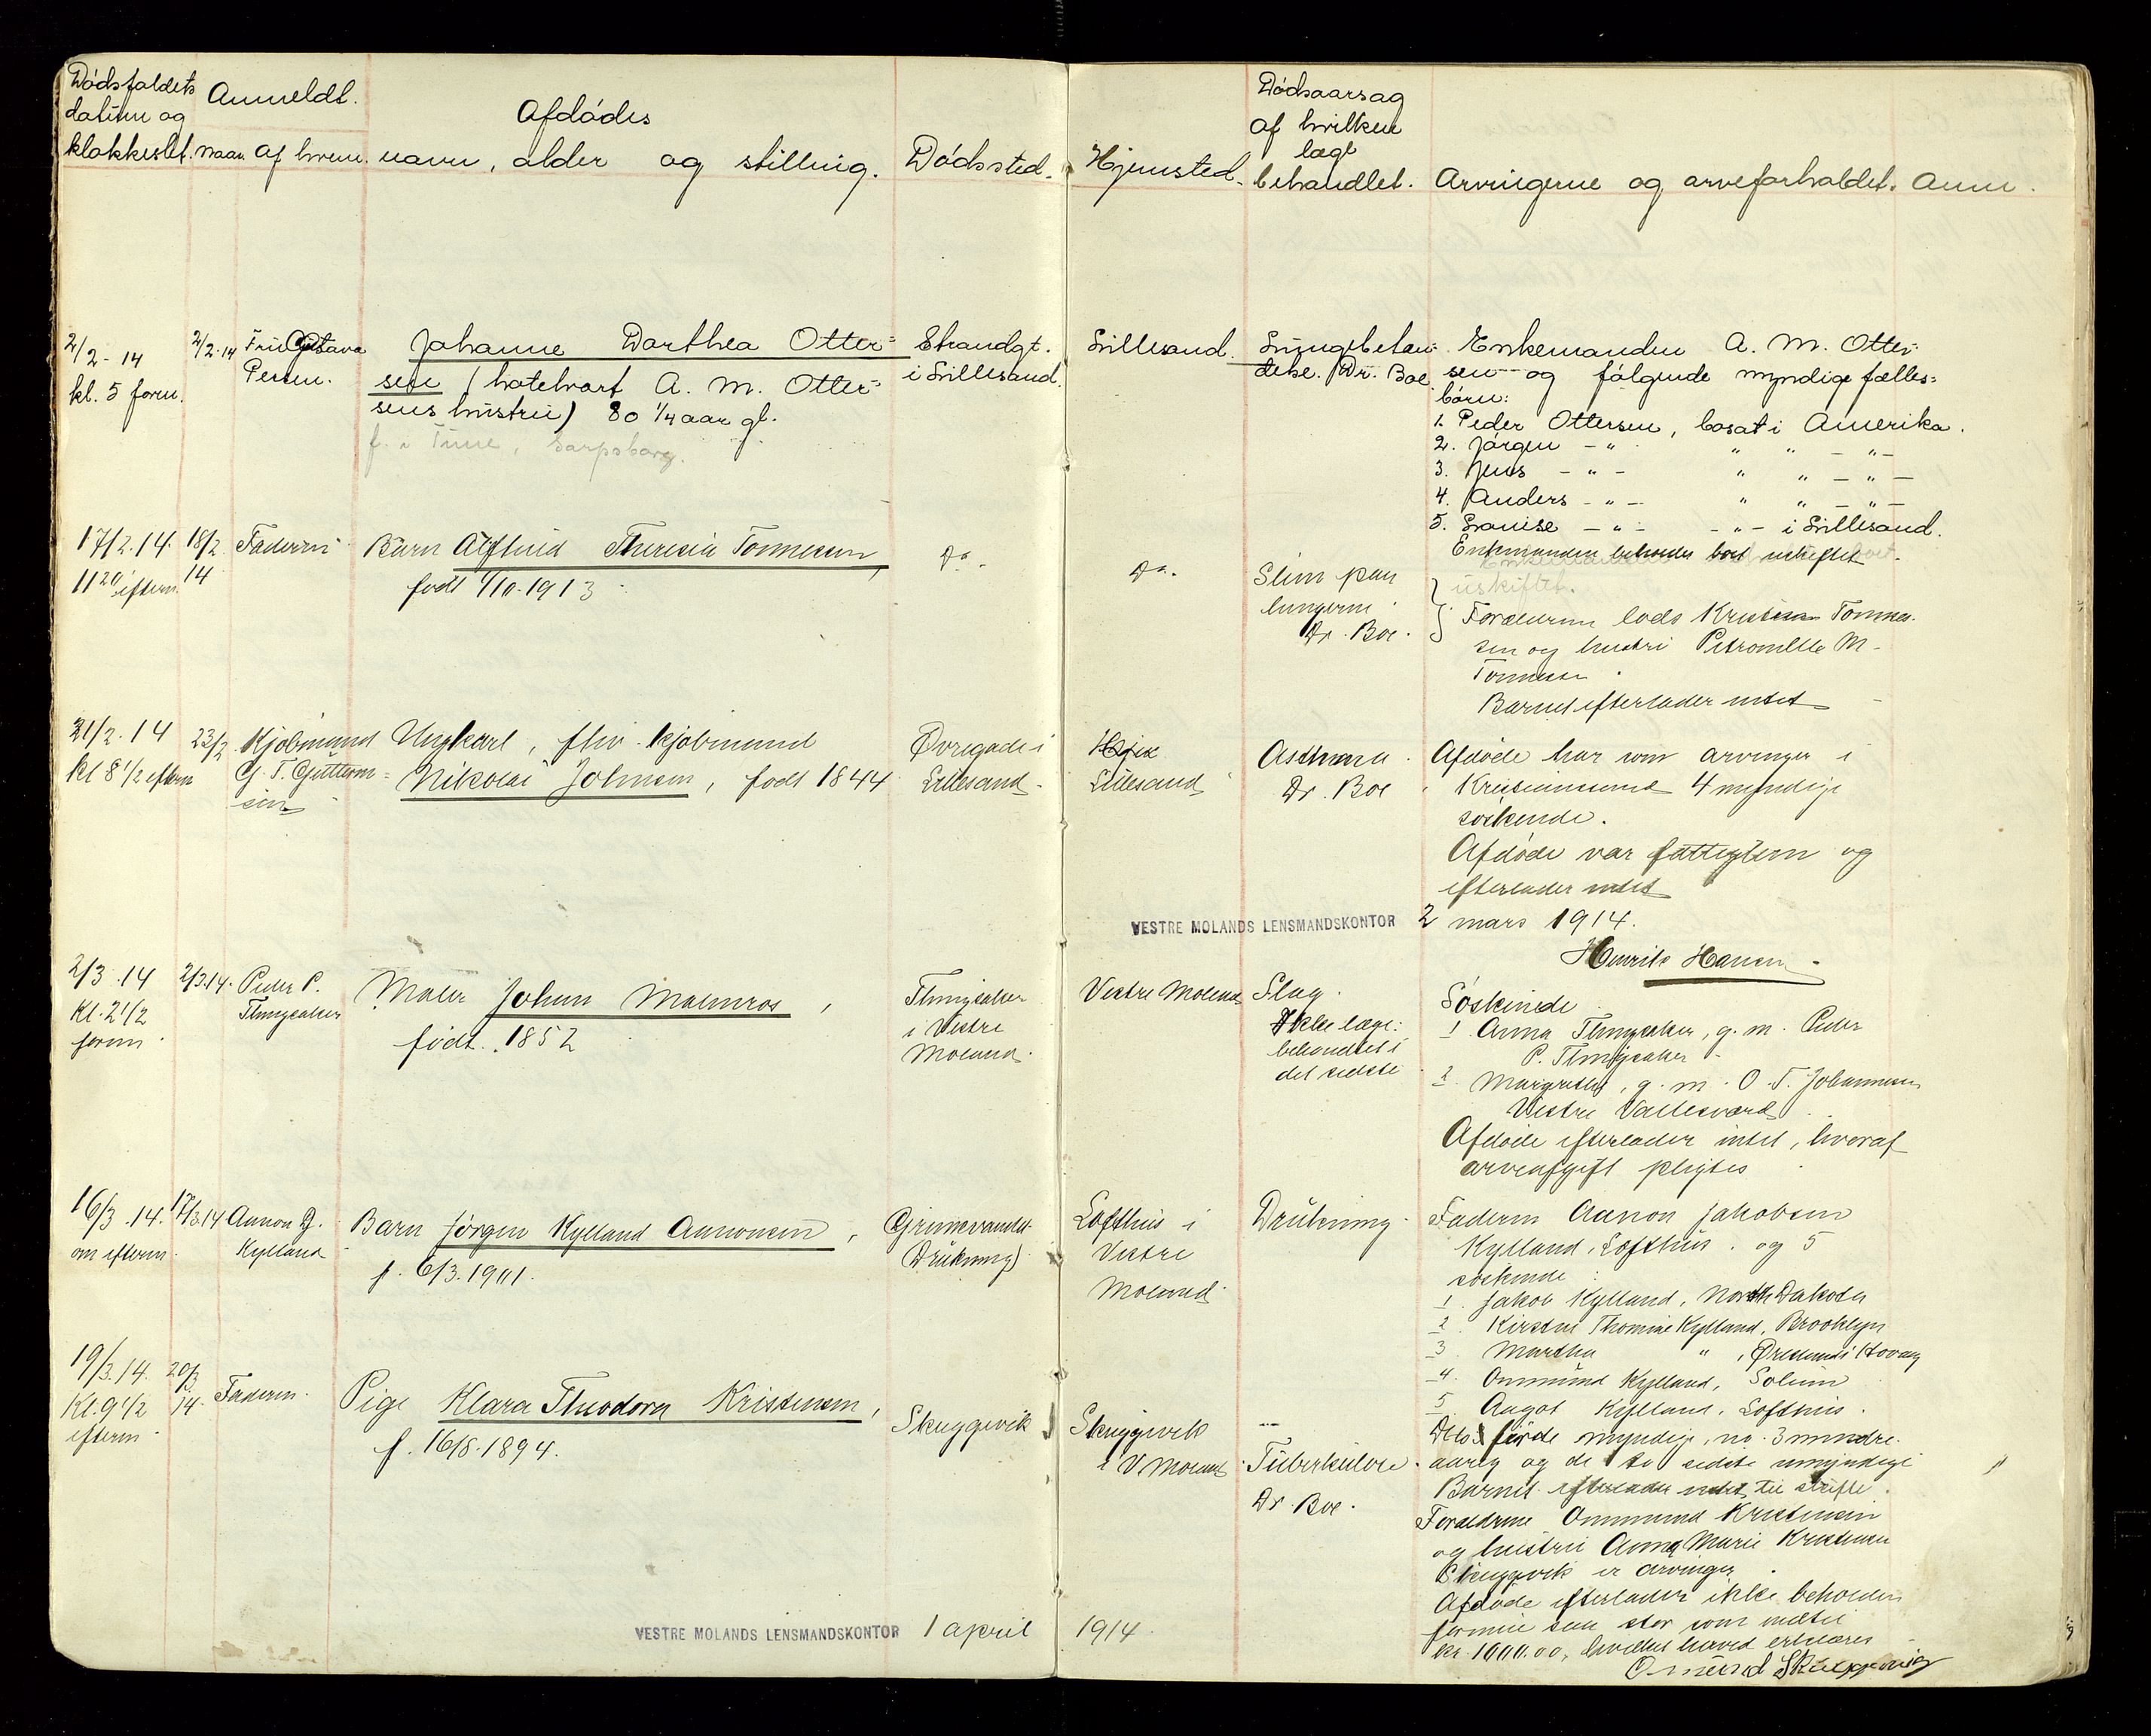 Dødsfaldets
datum og
klokkeslet.
Anmeldt.
naar. af hvem.
Afdødes
navn, alder og stilling.
Dødssted.
Hjemsted.
Dødsaarsag
af hvilken
læge
behandlet.
Arvingerne og arveforholdet. Anm.
2/2 - 14
kl. 5 form.
2/2-14
Fru Gustava
Persen.
Johanne Dorthea Otter=
sen (hotelvært A. M. Otter=
sens hustru) 80 1/4 aar gl.
f. i Tune, Sarpsborg.
Strandgt.
i Lillesand.
Lillesand.
Lungebetæn=
delse. Dr. Boe.
Enkemanden A. M. Otter=
sen og følgende myndige fælles=
børn:
1. Peder Ottersen, bosat i Amerika.
2. Jørgen - " - " " - " -
3. Jens - " - " " - " -
4. Anders - " - " " - " -
5. Louise - " - - " - i Lillesand.
Enkemanden beholder boet uskiftet.
uskiftet.
17/2.14.
11 20 eftem.
18/2
14
Faderen
Barn Theresia Tønnesen,
født 1/10.1913
Do.
Do.
Slim paa
lungerne
Dr. Boe.
Forældrene lods Kristian Tønnes-
sen og hustru Petronelle M.
Tønnesen.
Barnet efterlader intet
21/2.14
kl 8 1/2 eftem
23/2
Kjøbmand
G. T. Guttorm=
sen
Ungkarl, fhv. kjøbmand
Nikolai Johnsen, født 1844
Øvregade i
Lillesand.
Lillesand
Asthma.
Dr. Boe
Afdøde har som arvinger i
Kristianssand 4 myndige
søskende.
Afdøde var fattiglem og
efterlader intet
VESTRE MOLANDS LENSMANDSKONTOR 2 mars 1914.
Henrik Hansen
2/3.14
Kl. 2 1/2
form.
2/3.14.
Peder P.
Tingsaker
Maler Johan Malmros,
født 1852
Tingsaker
i Vestre
Moland.
Vestre Moland
Slag.
Ikke læge=
behandlet i
det sidste
Søskende
1 Anna Tingsaker, g. m. Peder
P. Tingsaker
2 Margrethe, g. m. O. T. Johannesen
Vestre Vallesværd.
Afdøde efterlader intet, hvoraf
arveafgift pligtes
16/3.14.
om eftem.
17/3.14
Aanon J.
Kylland
Barn Jørgen Kylland Aanonsen,
f. 6/3.1901.
Grimevandet
(Drukning)
Lofthus i
Vestre
Moland.
Drukning.
Faderen Aanon Jakobsen
Kylland, Lofthus. og 5
søskende:
1. Jakob Kylland, North Dakota
2 Kirstine Thomine Kylland, Brooklyn
3 Martha " , Øresund i Høvaag
4. Ommund Kylland, Solum
5 Aagot Kylland, Lofthus.
myndige, no. 3 mindre-
aarig og de to sidste umyndige
Barnet efterlader intet til skifte.
19/3.14.
Kl. 9 1/2
eftem.
20/3
14.
Faderen.
Pige Klara Theodora Kristensen,
f. 16/8.1894.
Skuggevik
Skuggevik
i V Moland
Tuberkulose.
Dr. Boe.
Forældrene Ommund Kristensen
og hustru Anna Marie Kristensen
Skuggevik er arvinger
Afdøde efterlader ikke beholden
formue saa stor som indtil
kr. 1000.00, hvilket herved erklæres
Omund Skuggevig
VESTRE MOLANDS LENSMANDSKONTOR 1 april 1914.